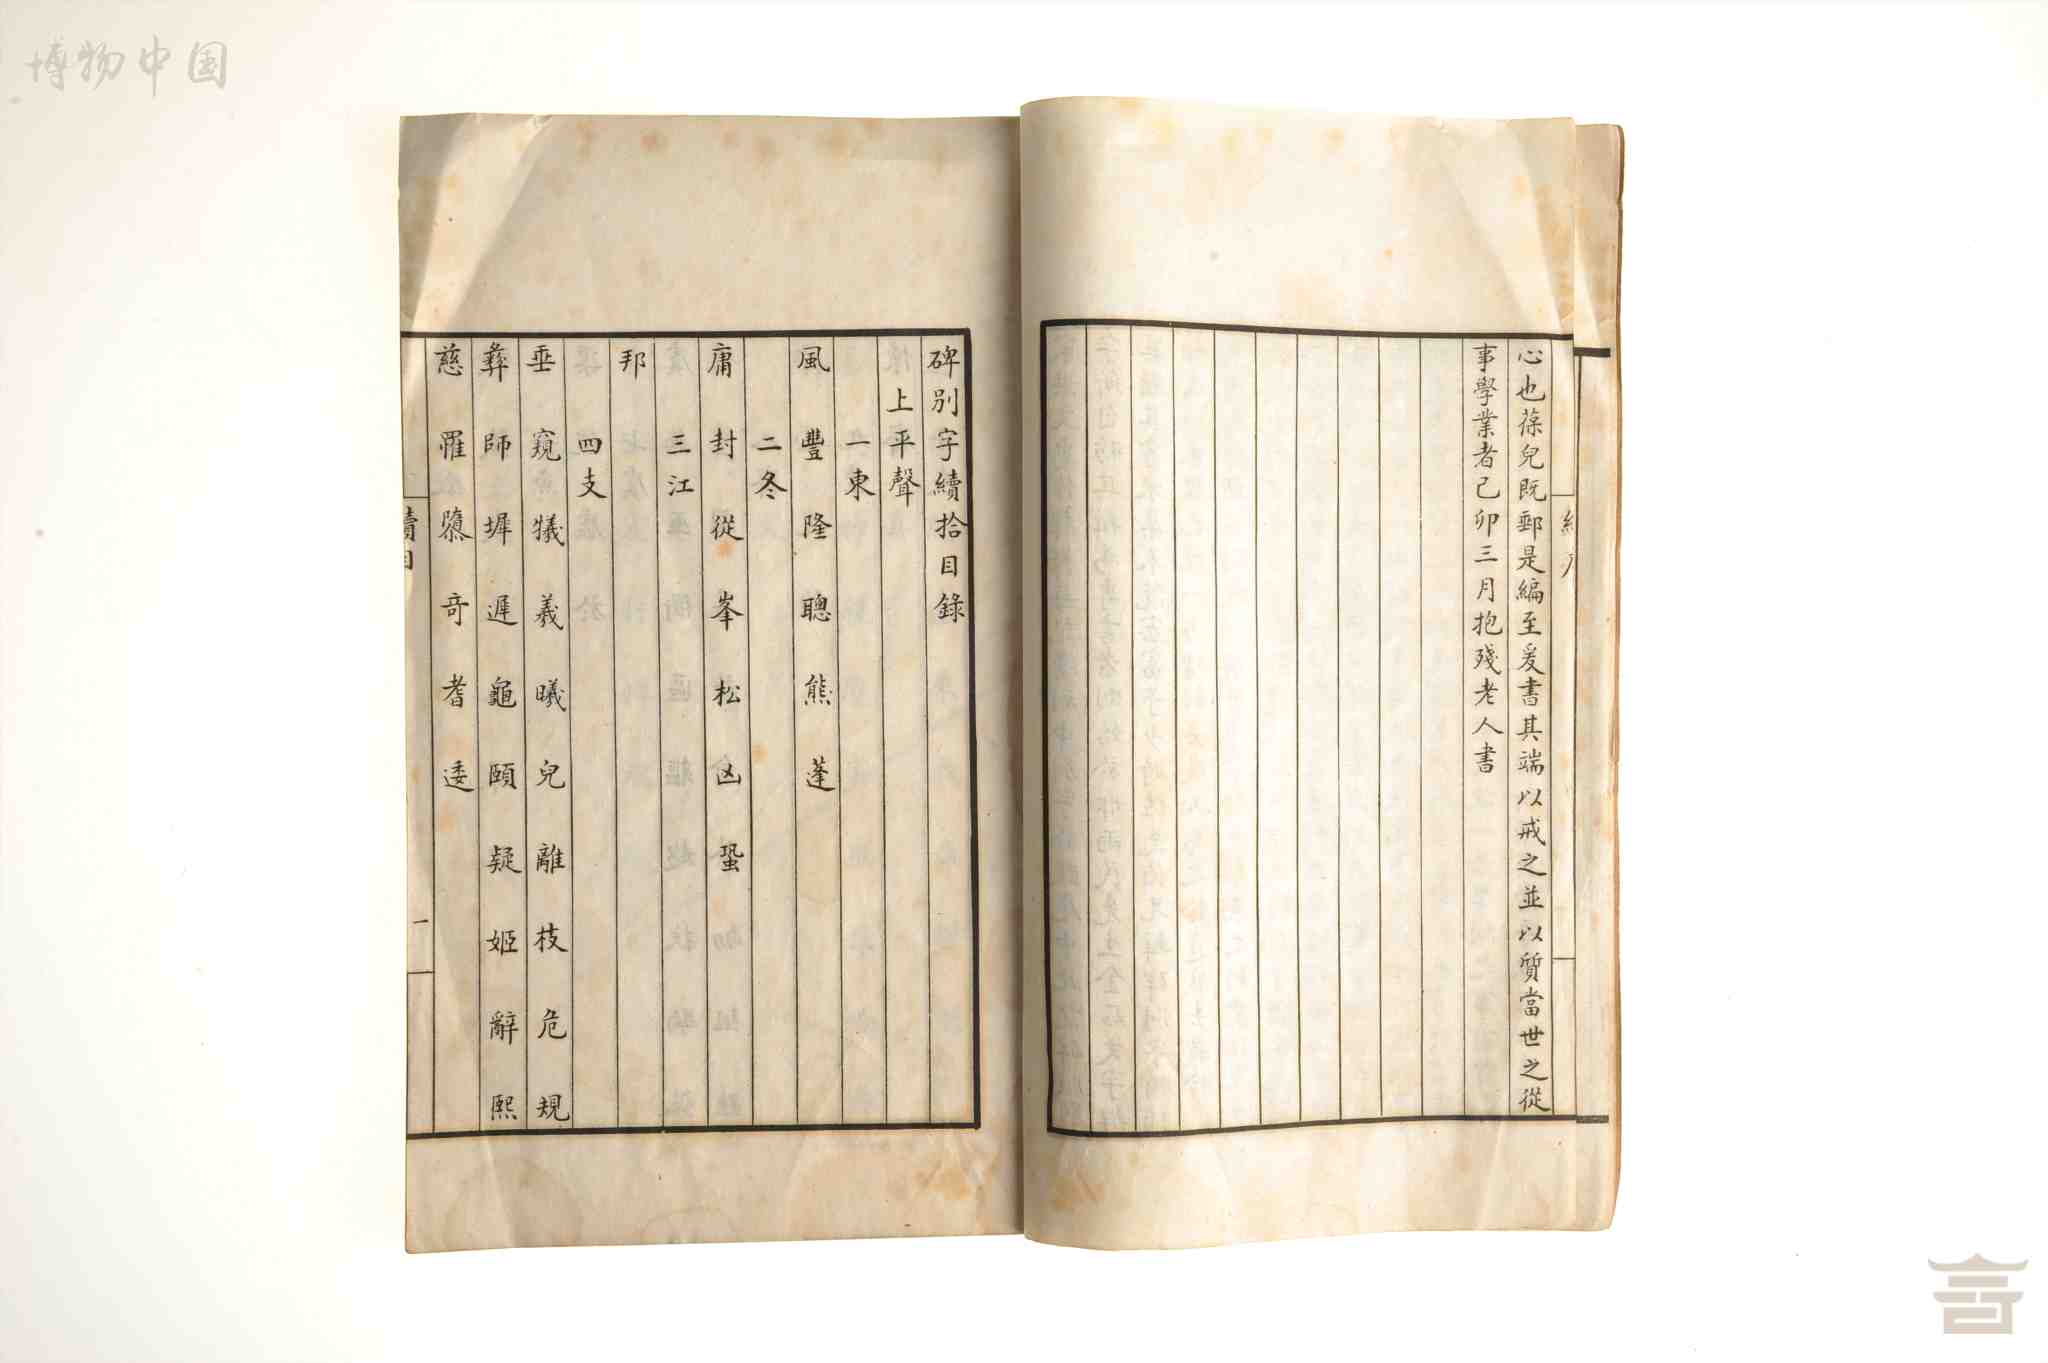 博物中国
心也葆兒既郵是編至爰書其端以戒之並以質當世之從
事學業者己卯三月抱殘老人書
碑別字續拾目錄
上平聲
一東
風 豐 隆 聰 熊 蓬
二冬
庸 封 從 峯 松 凶 蛩
三江
邦
四支
垂 窺 犧 羲 曦 兒 離 枝 危 規
彝 師 墀 遲 龜 頤 疑 姬 辭 熙
慈 罹 隳 奇 耆 逶
續目
一